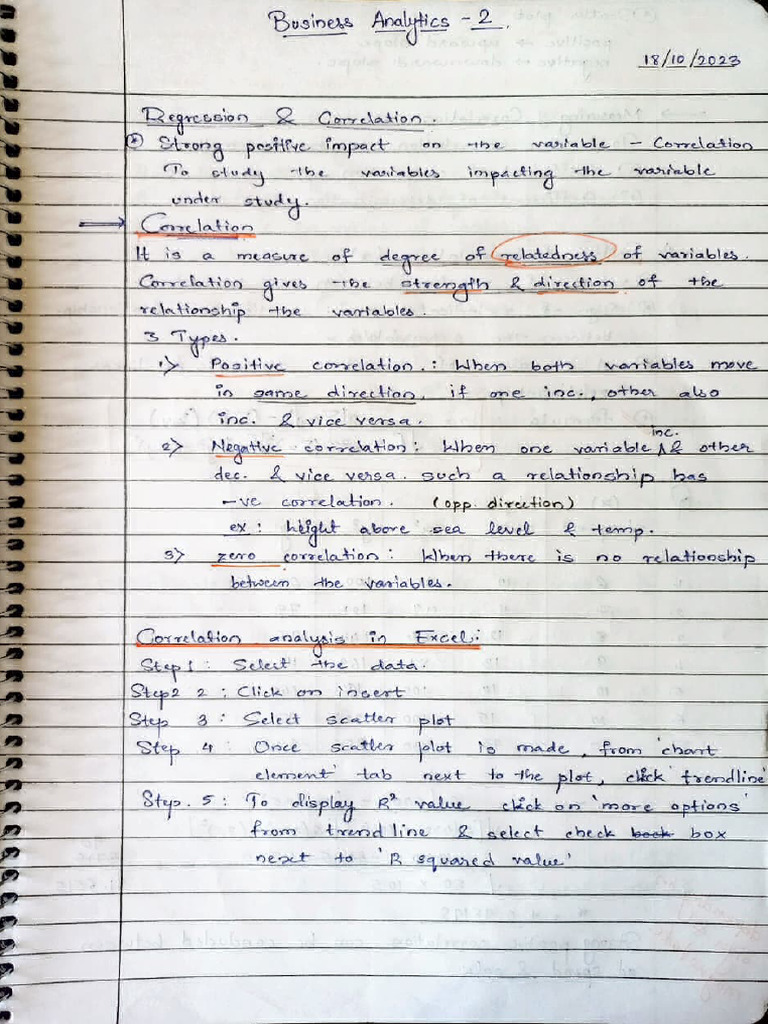 Business Analytics - 2.
18/10/2023
Regression & Correlation.
* Strong positive impact on the variable - Correlation
To study the variables impacting the variable
under study.
→ Correlation
It is a measure of degree of relatedness of variables.
Correlation gives the strength & direction of the
relationship the variables.
3 Types.
1) Positive correlation. : When both variables move
in same direction, if one inc., other also
inc. & vice versa.
2) Negative correlation : When one variable inc. & other
dec. & vice versa. such a relationship has
-ve correlation. (opp. direction)
ex : height above sea level & temp.
3) zero correlation : When there is no relationship
between the variables.
Correlation analysis in Excel :
Step 1 : Select the data.
Step2 2 : Click on insert
Step 3 : Select scatter plot
Step 4 : Once scatter plot is made, from 'chart
element' tab next to the plot, click 'trendline'
Step. 5 : To display R² value click on 'more options'
from trend line & select check box
next to 'R squared value'